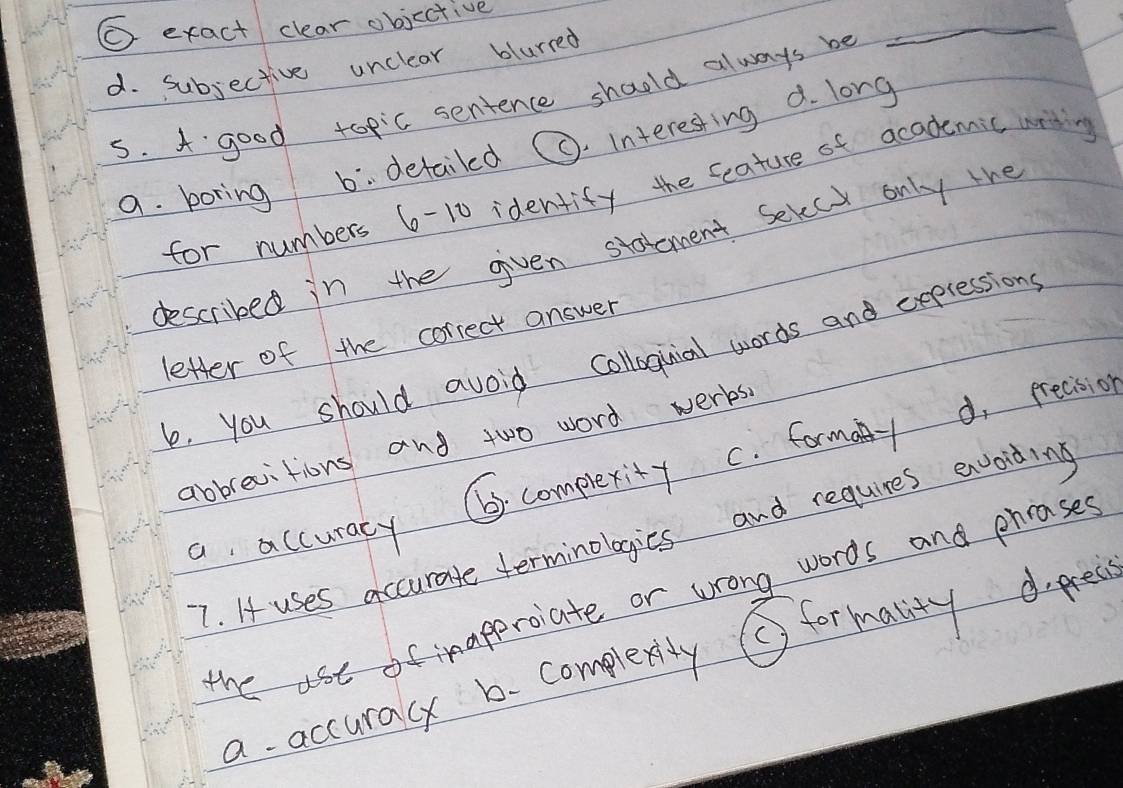 c exact clear objective
d. Subjective unclear blurred
5. A good topic sentence should always be ______
a. boring b. detailed c. Interesting d. long
for numbers 6-10 identify the feature of academic writing
described in the given statement. Select only the
letter of the correct answer
6. You should avoid colloquial words and expressions
abbreuitions and two word werbs.
a. accuracy b. complexity c. formality d. precision
7. It uses accurate terminologies and requires avoiding
the use of inapproiate or wrong words and phrases
a - accuracy b- complexity c. formality d. precis